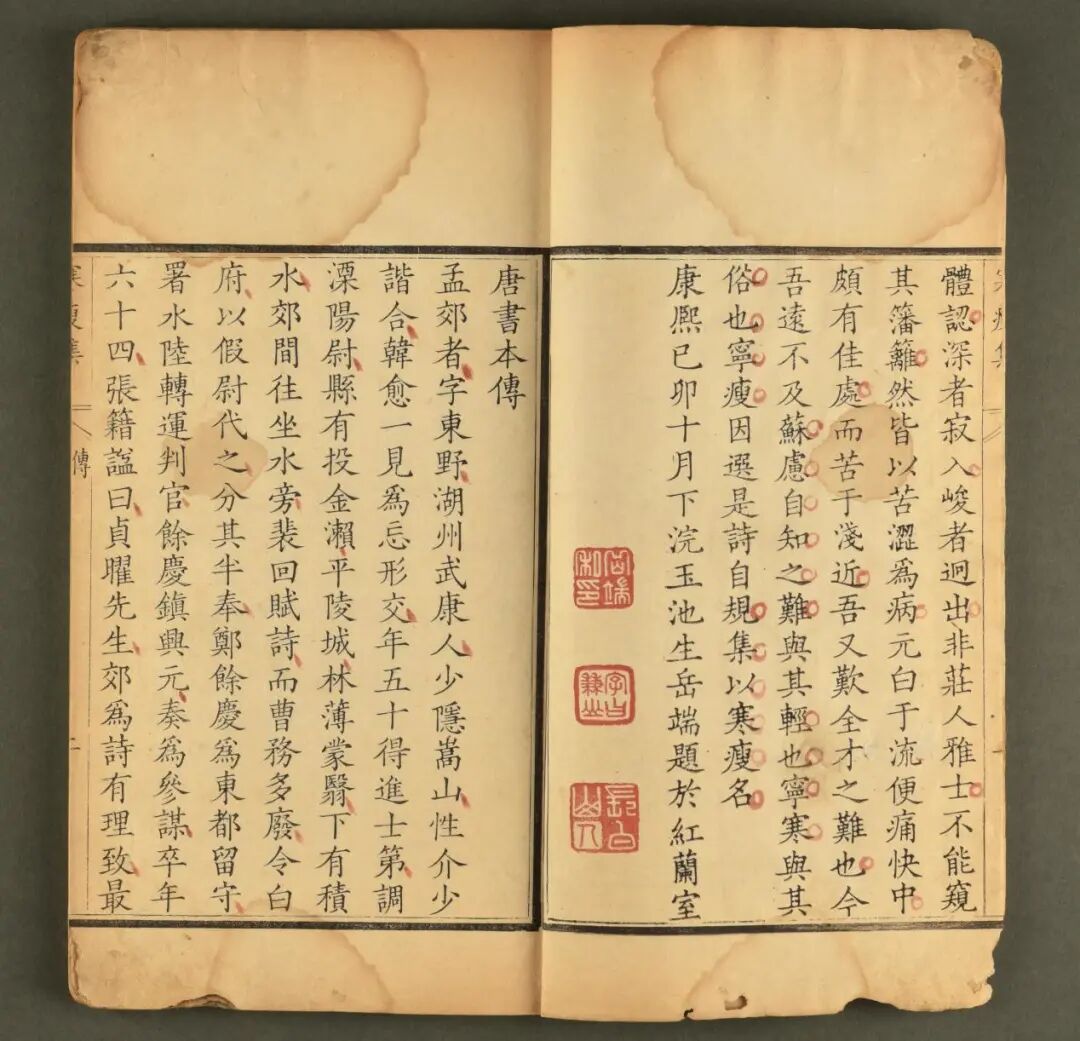 體認深者寂入峻者迥出非莊人雅士不能窺
其籓籬然皆以苦澀為病元白于流便痛快中
頗有佳處而苦于淺近吾又歎全才之難也今
吾遠不及蘇慮自知之難與其輕也寧寒與其
俗也寧瘦因選是詩自規集以寒瘦名
康熙已卯十月下浣玉池生岳端題於紅蘭室
岳端私印
字曰兼山
長白十八
唐書本傳
孟郊者字東野湖州武康人少隱嵩山性介少
諧合韓愈一見爲忘形交年五十得進士第調
溧陽尉縣有投金瀨平陵城林薄蒙翳下有積
水郊間往坐水旁裴回賦詩而曹務多廢令白
府以假尉代之分其半奉鄭餘慶爲東都留守
署水陸轉運判官餘慶鎮興元奏爲參謀卒年
六十四張籍謚曰貞曜先生郊爲詩有理致最
寒瘦集
傳
二